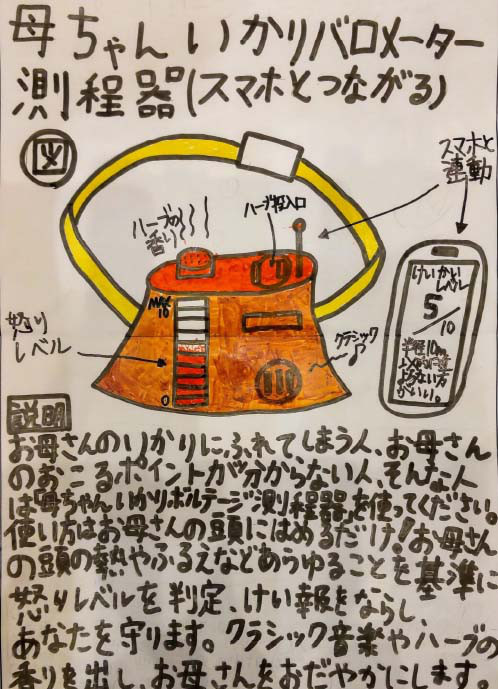 母ちゃんいかりバロメーター
測程器(スマホとつながる)
図
スマホと
連動
ハーブの
香り
ハーブ投入口
MAX
10
0
怒り
レベル
クラシック
けいかい
レベル
5
/10
半径10m
説明
お母さんのいかりに、ふれてしまう人、お母さん
のおこるポイントが分からない人、そんな人
は「母ちゃんいかりボルテージ測程器」を使ってください。
使い方はお母さんの頭にはめるだけ!お母さん
の頭の熱やふるえなどあらゆることを基準に
怒りレベルを判定、けい報をならし、
あなたを守ります。クラシック音楽やハーブの
香りを出し、お母さんをおだやかにします。